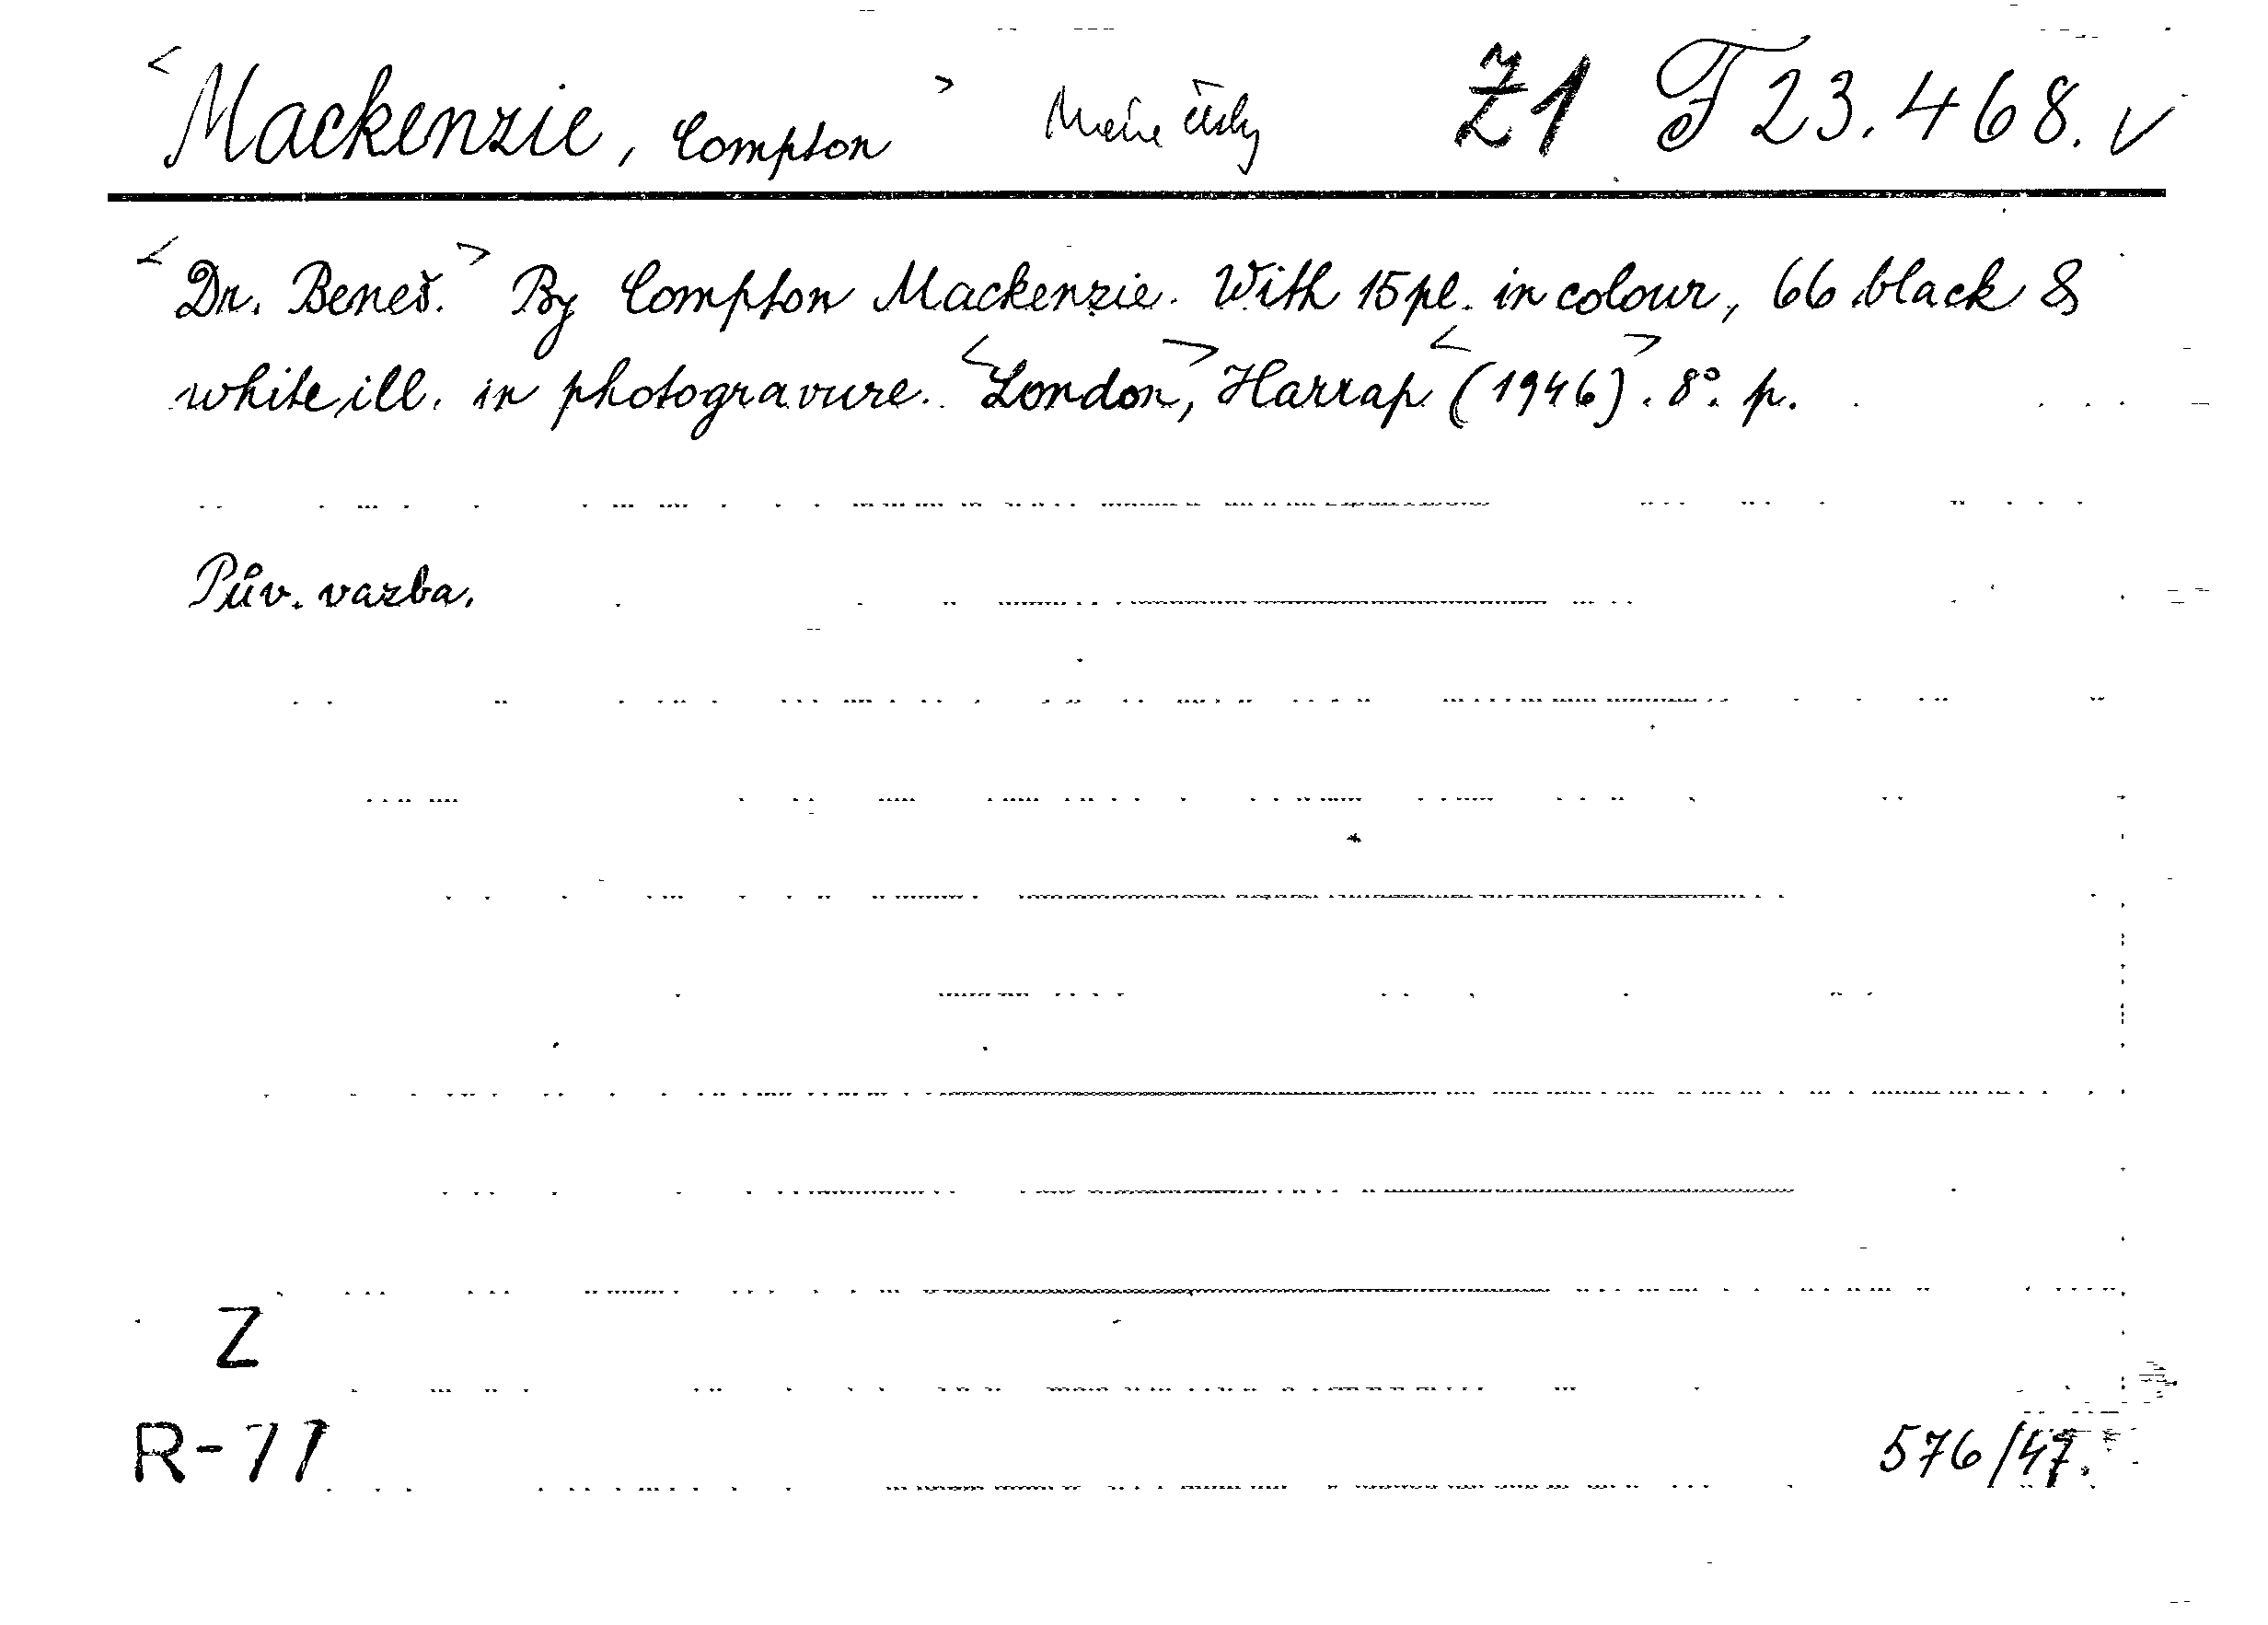 <Mackenzie, Compton> česky Z1 F 23.468. ✓
<Dr. Beneš.> By Compton Mackenzie. With 15 pl. in colour, 66 black &
white ill. in photogravure. <London>, Harrap <(1946)>. 8°. p.
Pův. vazba.
Z
R-77
576/47.